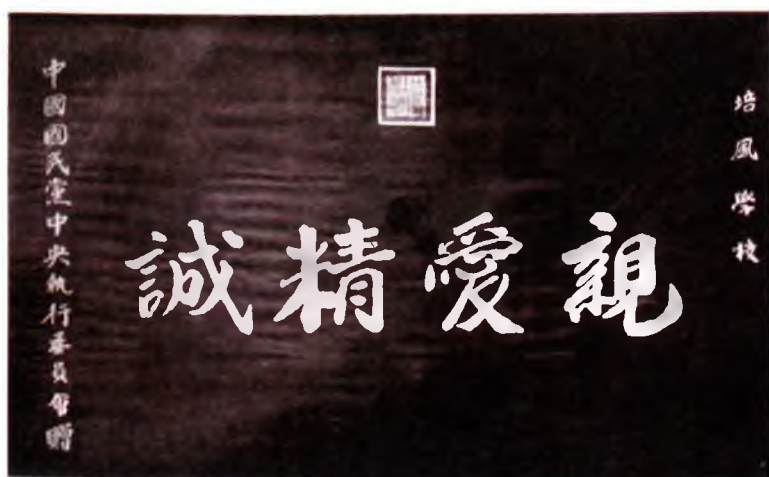 培風學校
親愛精誠
中國國民黨中央執行委員會贈